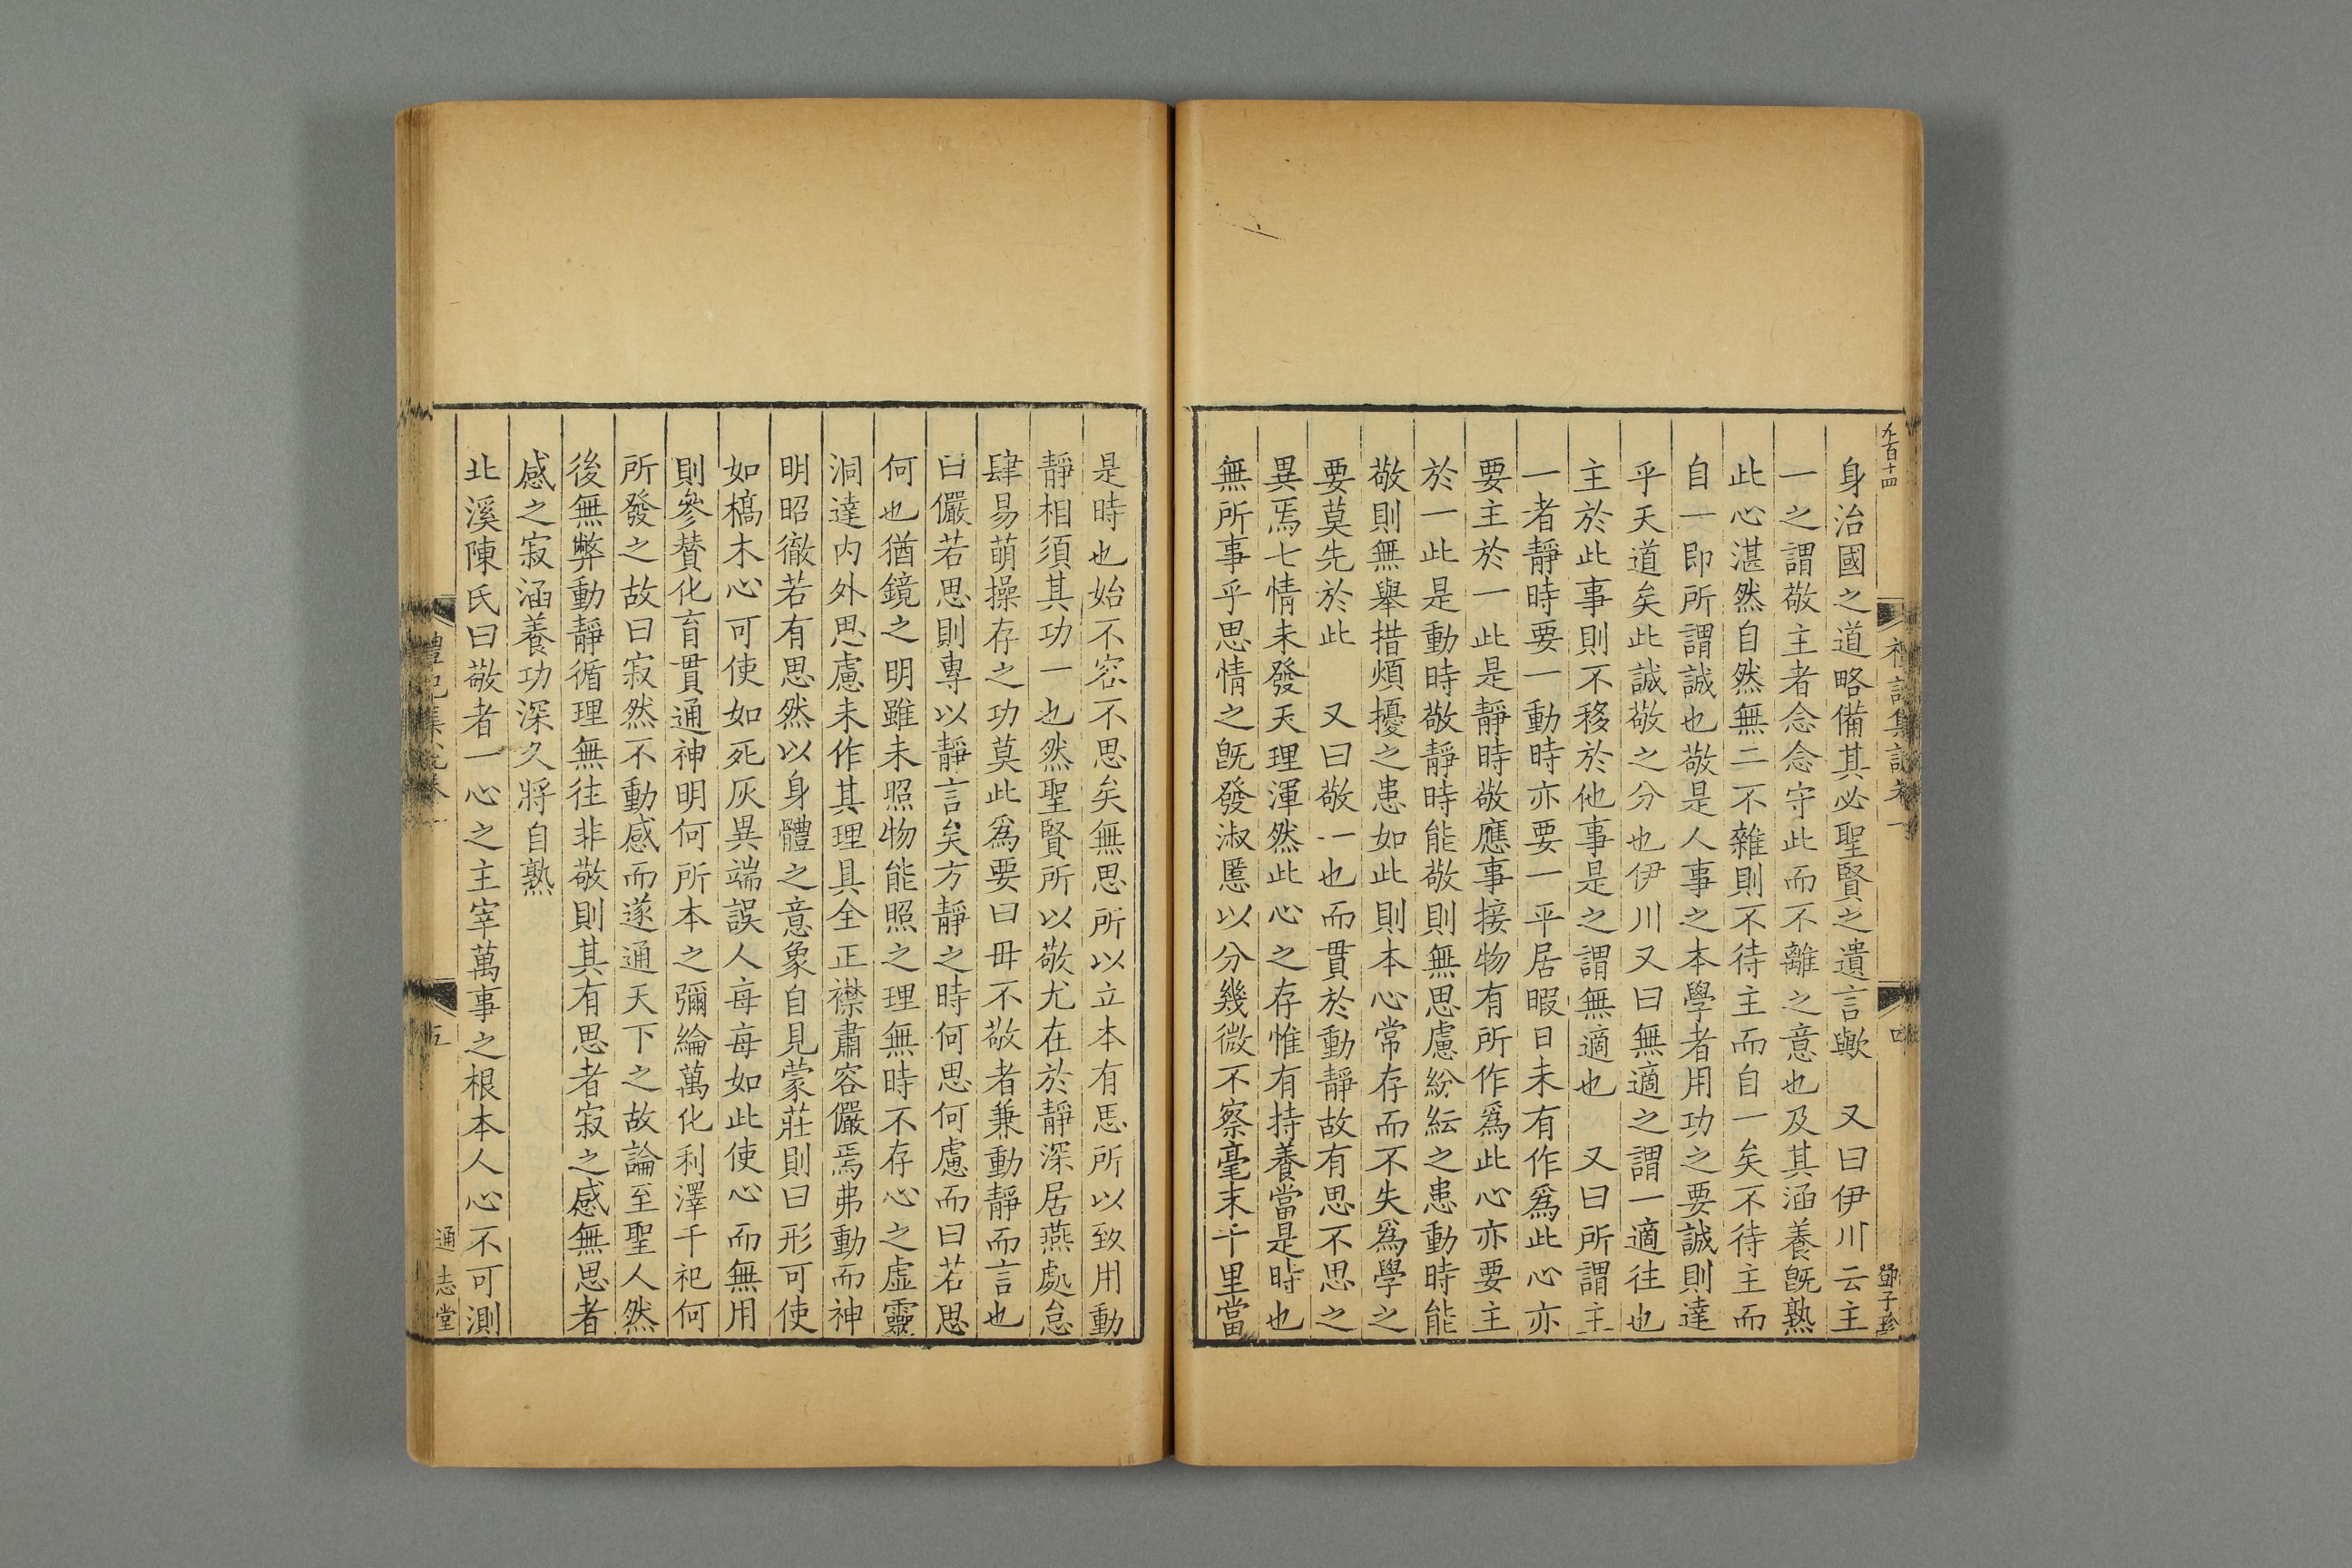 九百十四
禮記集說卷一
四
鄧子珍
身治國之道略備其必聖賢之遺言歟　又曰伊川云主
一之謂敬主者念念守此而不離之意也及其涵養旣熟
此心湛然自然無二不雜則不待主而自一矣不待主而
自一即所謂誠也敬是人事之本學者用功之要誠則達
乎天道矣此誠敬之分也伊川又曰無適之謂一適往也
主於此事則不移於他事是之謂無適也　又曰所謂主
一者靜時要一動時亦要一平居暇日未有作爲此心亦
要主於一此是靜時敬應事接物有所作爲此心亦要主
於一此是動時敬靜時能敬則無思慮紛紜之患動時能
敬則無舉措煩擾之患如此則本心常存而不失爲學之
要莫先於此　又曰敬一也而貫於動靜故有思不思之
異焉七情未發天理渾然此心之存惟有持養當是時也
無所事乎思情之旣發淑慝以分幾微不察毫末千里當
是時也始不容不思矣無思所以立本有思所以致用動
靜相須其功一也然聖賢所以敬尤在於靜深居燕處怠
肆易萌操存之功莫此爲要曰毋不敬者兼動靜而言也
曰儼若思則專以靜言矣方靜之時何思何慮而曰若思
何也猶鏡之明雖未照物能照之理無時不存心之虛靈
洞達內外思慮未作其理具全正襟肅容儼焉弗動而神
明昭徹若有思然以身體之意象自見蒙莊則曰形可使
如槁木心可使如死灰異端誤人每每如此使心而無用
則參賛化育貫通神明何所本之彌綸萬化利澤千祀何
所發之故曰寂然不動感而遂通天下之故論至聖人然
後無弊動靜循理無往非敬則其有思者寂之感無思者
感之寂涵養功深久將自熟
北溪陳氏曰敬者一心之主宰萬事之根本人心不可測
禮記集說卷一
五
通志堂